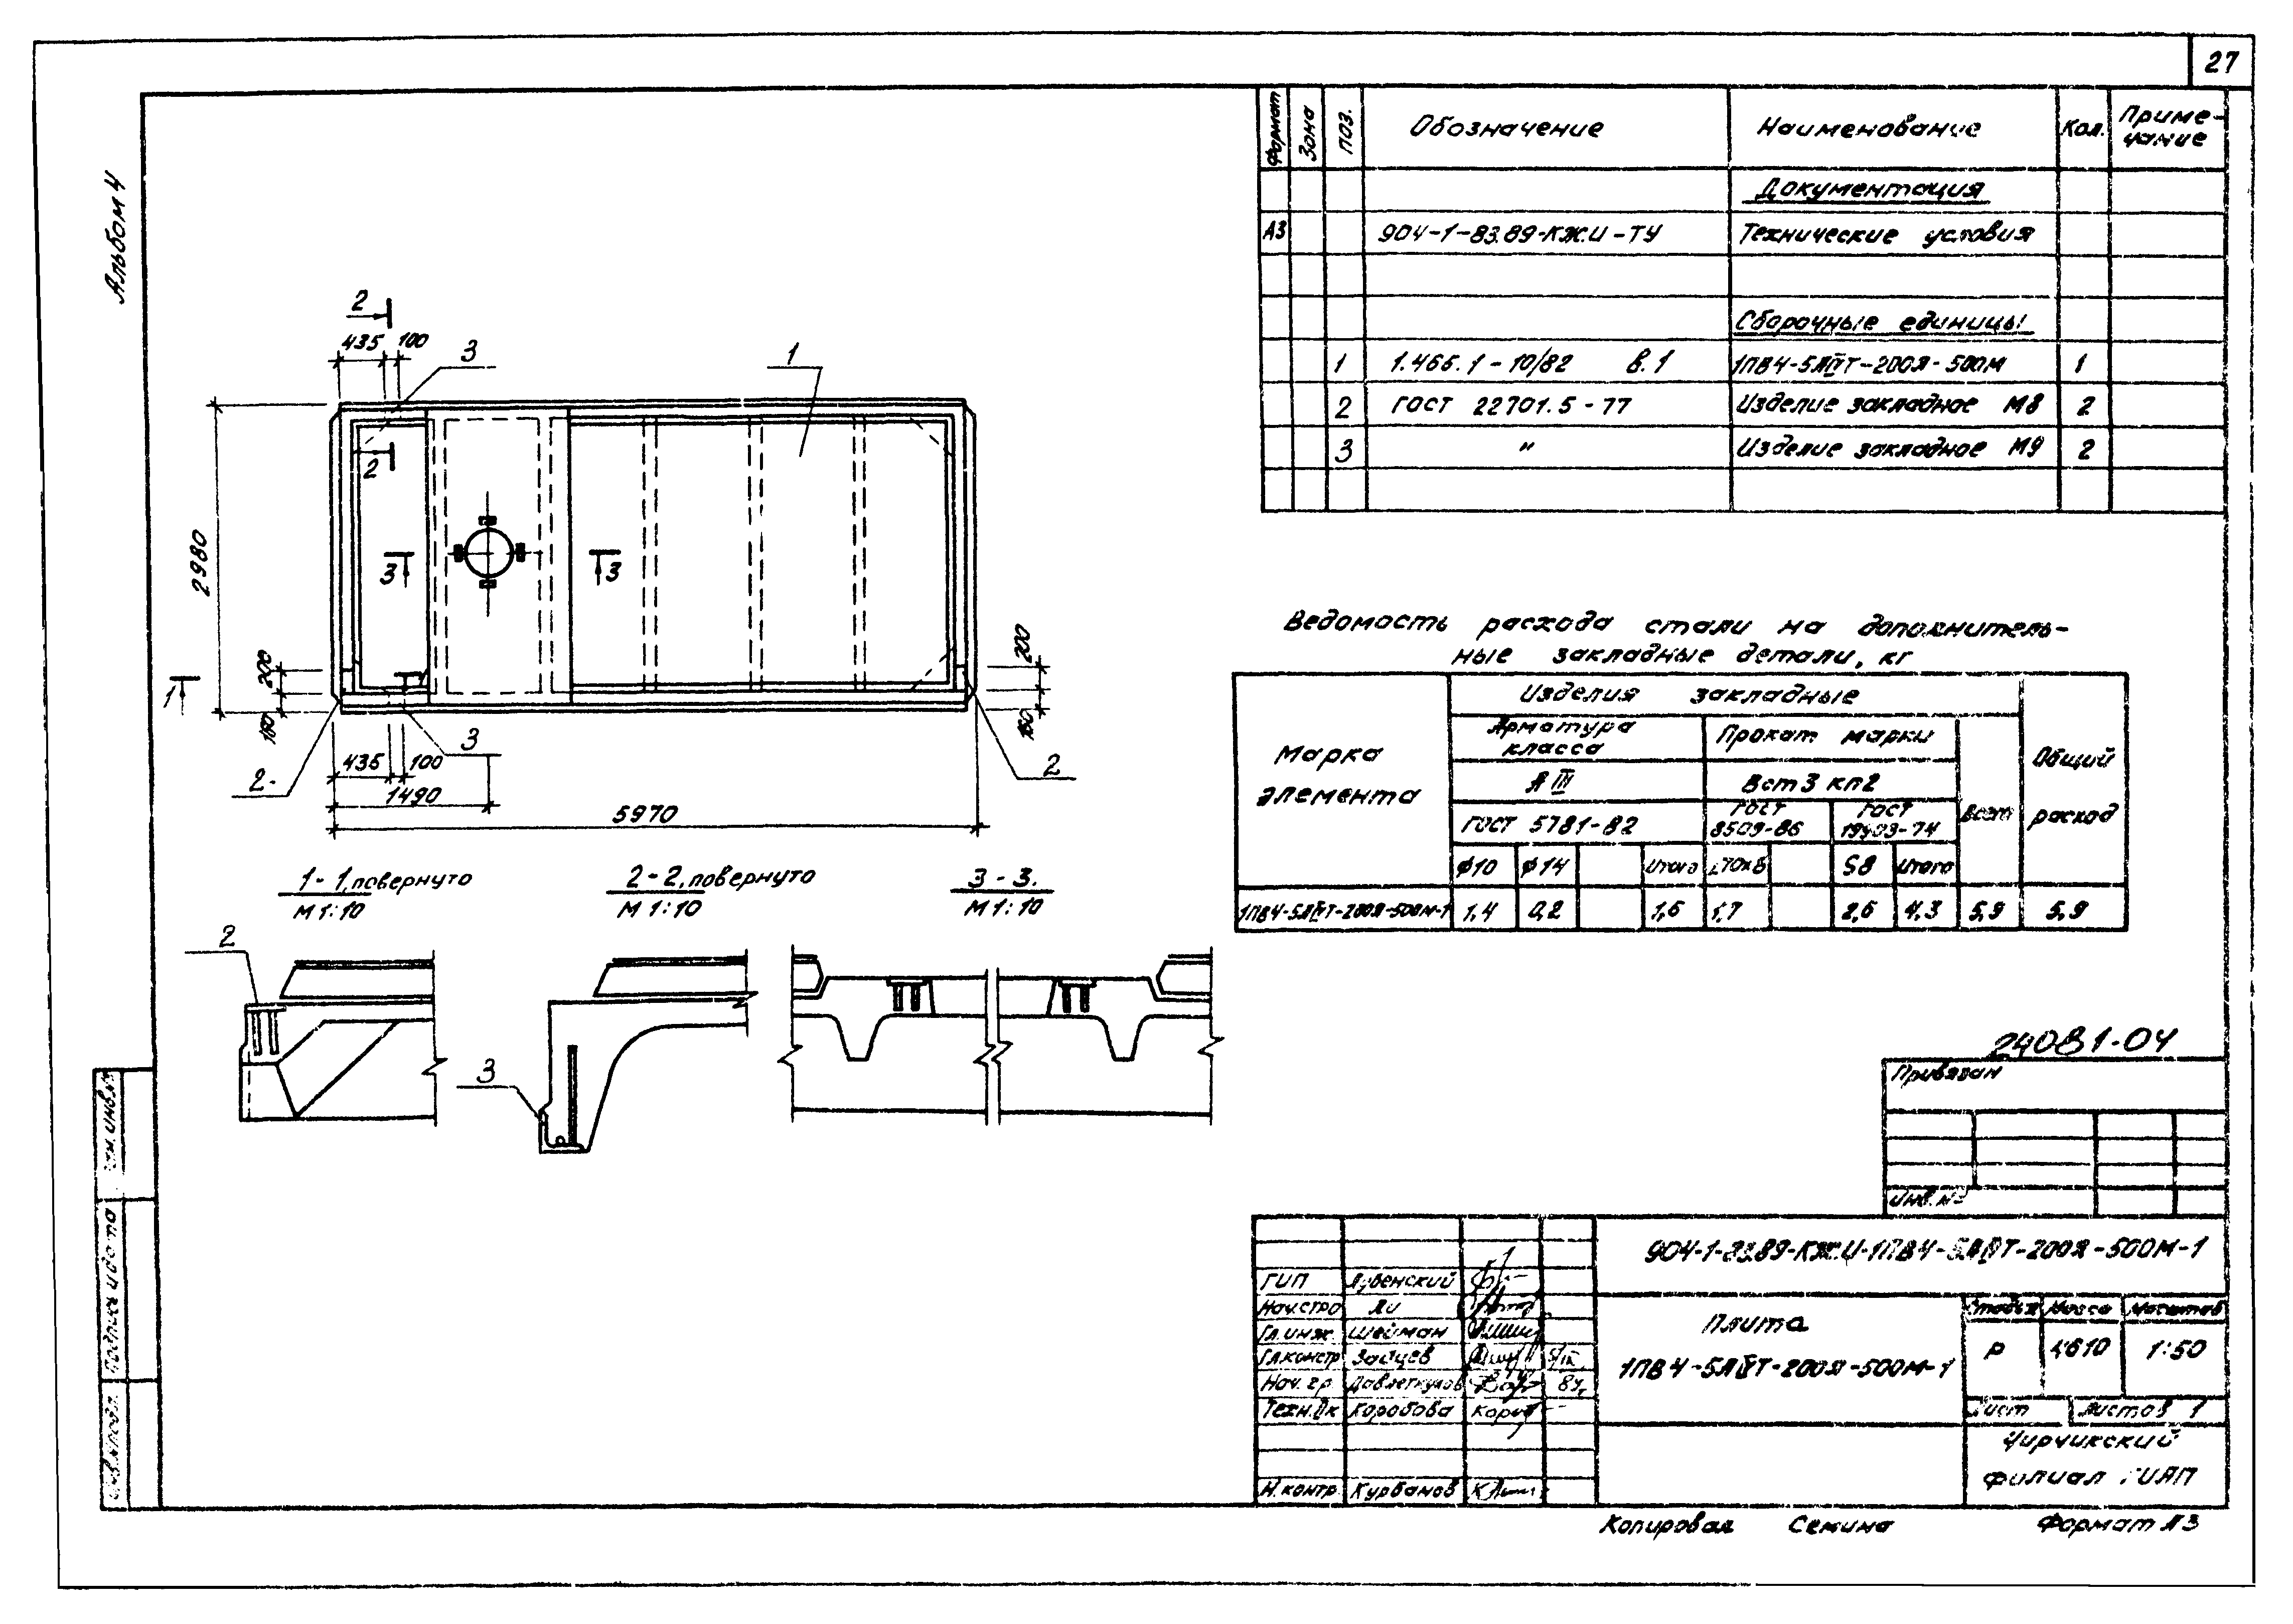 27
Альбом 4
Формат Зона Поз. Обозначение Наименование Кол. Приме-
чание
Документация
А3 904-1-83.89-КЖ.И-ТУ Технические условия
Сборочные единицы
1 1.465.1-10/82 в.1 1ПВ4-5АIVТ-200Я-500М 1
2 ГОСТ 22701.5-77 Изделие закладное М8 2
3 " Изделие закладное М9 2
2
435 100
3
1
2
2980
3
3
200
200
1
160
160
3
2
435 100
2
1490
5970
1-1, повернуто
М 1:10
2-2, повернуто
М 1:10
3-3.
М 1:10
2
3
Ведомость расхода стали на дополнитель-
ные закладные детали, кг
Марка
элемента
Изделия закладные
Арматура
класса
Прокат марки
Всего
Общий
расход
А III
Вст3 кп2
ГОСТ 5781-82
ГОСТ
8509-86
ГОСТ
19903-74
ф10 ф14 Итого L70х8 S8 Итого
1ПВ4-5АIVТ-200Я-500М-1 1,4 0,2 1,6 1,7 2,6 4,3 5,9 5,9
24081-04
Привязан
Инв.№
904-1-83.89-КЖ.И-1ПВ4-5АIVТ-200Я-500М-1
ГИП Лубенский
Нач.стро Ли
Гл.инж. Шейман
Гл.констр Зайцев
Нач. гр Давлеткулов
Коробова
Н.контр Курбанов
Плита
1ПВ4-5АIVТ-200Я-500М-1
Стадия Масса Масштаб
Р 4610 1:50
Лист Листов 1
Чирчикский
филиал ГИАП
Подпись и дата
Инв.№ подл.
Копировал Семина Формат А3